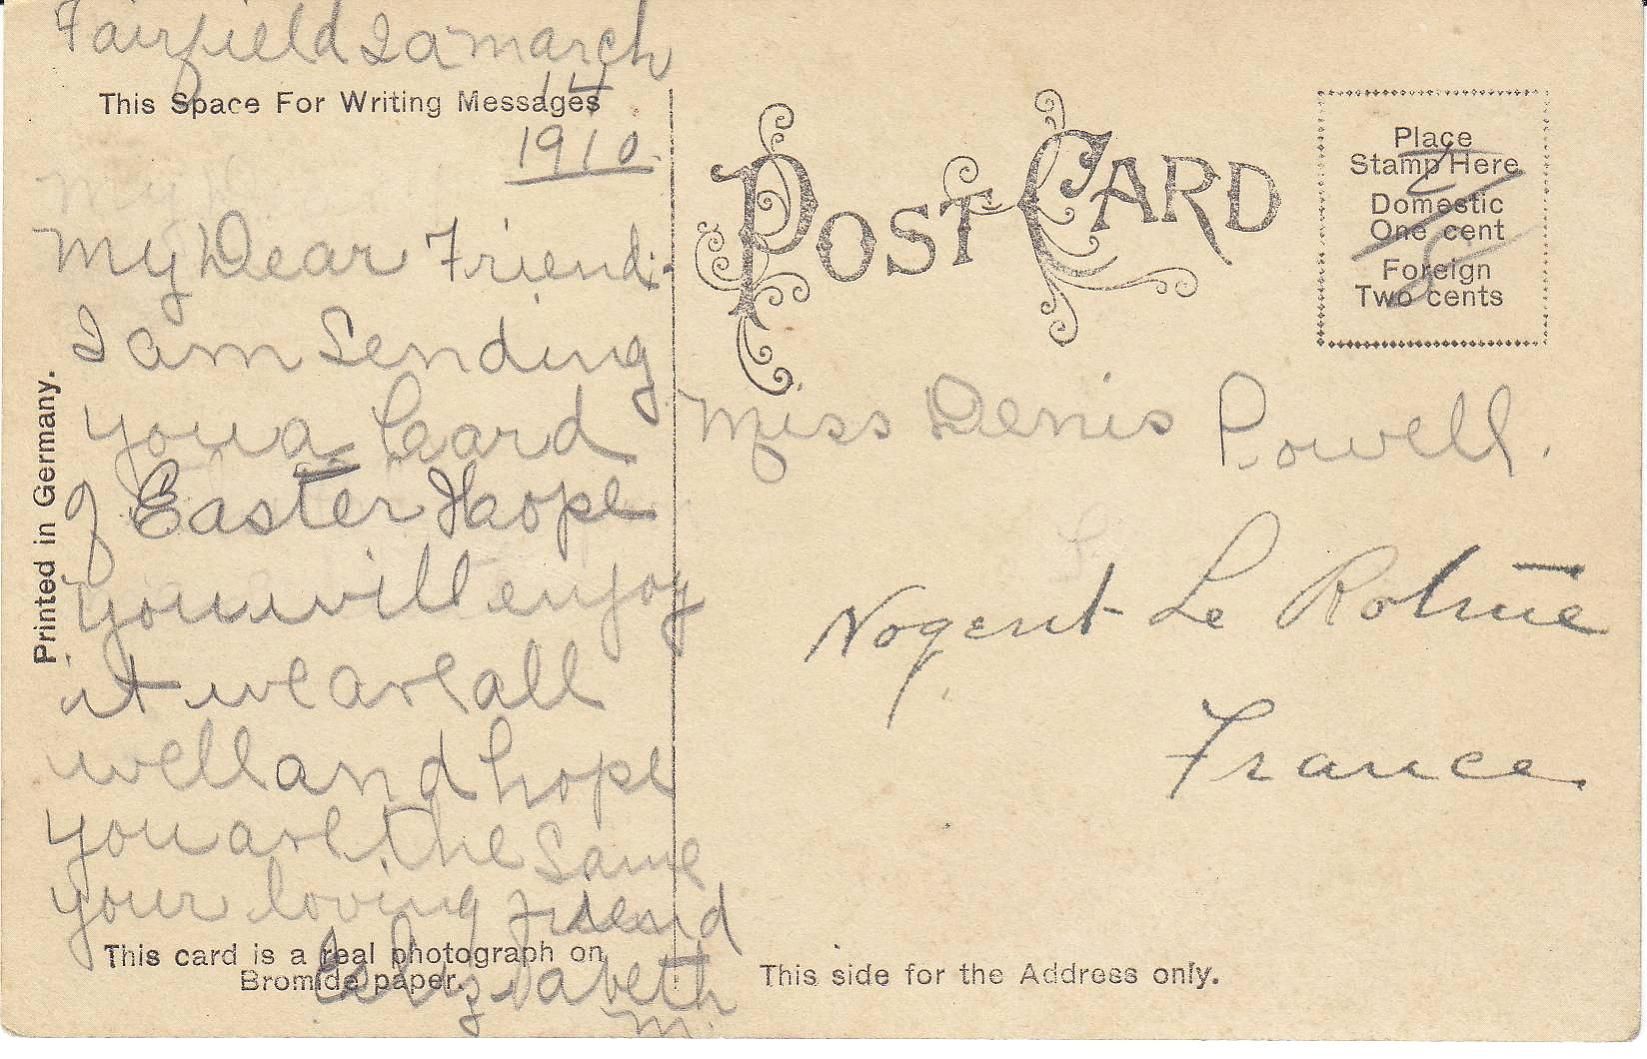 Fairfield Ia march
14
1910.
This Space For Writing Messages
My Dear Friend:-
I am Sending
you a Card
of Easter Hope
you will enjoy
it we are all
well and hope
you are the Same
your loving friend
Elizabeth
M.
This card is a real photograph on
Bromide paper.
Printed in Germany.
POST CARD
Place
Stamp Here
Domestic
One cent
Foreign
Two cents
Miss Denis Powell.
Nogent Le Rotrue
France
This side for the Address only.